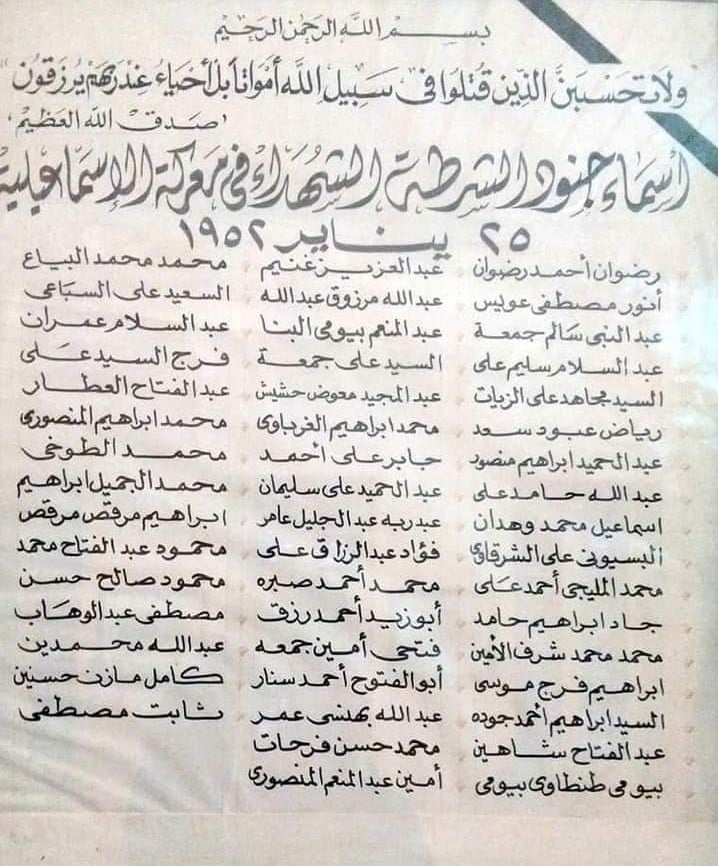 بسم الله الرحمن الرحيم
ولا تحسبن الذين قتلوا في سبيل الله أمواتا بل أحياء عند ربهم يرزقون
"صدق الله العظيم"
اسماء جنود الشرطة الشهداء في معركة الإسماعيلية
٢٥ يناير ١٩٥٢
رضوان أحمد رضوان
أنور مصطفى عويس
عبد النبى سالم جمعة
عبد السلام سليم على
السيد مجاهد على الزيات
رياض عبود سعد
عبد الحميد ابراهيم منصور
عبد الله حامد على
اسماعيل محمد وهدان
البسيونى على الشرقاوى
محمد المليجى أحمد على
جاد ابراهيم حامد
محمد محمد شرف الأمين
ابراهيم فرج موسى
السيد ابراهيم أحمد جوده
عبد الفتاح شاهين
بيومى طنطاوى بيومى
عبد العزيز غنيم
عبد الله مرزوق عبد الله
عبد المنعم بيومى البنا
السيد على جمعة
عبد المجيد معوض حشيش
محمد ابراهيم الغرباوى
جابر على احمد
عبد الحميد على سليمان
عبد ربه عبد الجليل عامر
فؤاد عبد الرزاق على
محمد أحمد صبره
أبوزيد أحمد رزق
فتحى أمين جمعه
أبو الفتوح أحمد سنار
عبد الله بهنسى عمر
محمد حسن فرحات
أمين عبد المنعم المنصورى
محمد محمد البياع
السعيد على السباعى
عبد السلام عمران
فرج السيد على
عبد الفتاح العطار
محمد ابراهيم المنصورى
محمد الطوخى
محمد الجميل ابراهيم
ابراهيم مرقص مرقص
محمود عبد الفتاح محمد
محمود صالح حسن
مصطفى عبد الوهاب
عبد الله محمدين
كامل مازن حسنين
ثابت مصطفى